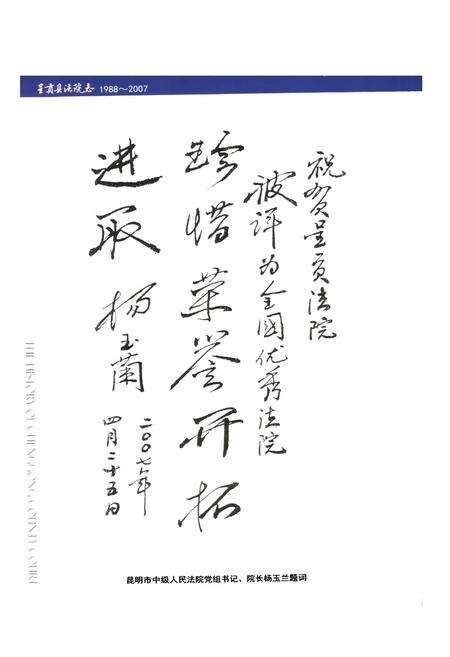 呈贡县法院志 1988～2007
祝贺呈贡法院
被评为全国优秀法院
珍惜荣誉开拓
进取 杨玉蘭
二〇〇七年
四月二十五日
THE HISTORY OF CHENGGONG COUNTY COURT
昆明市中级人民法院党组书记、院长杨玉兰题词